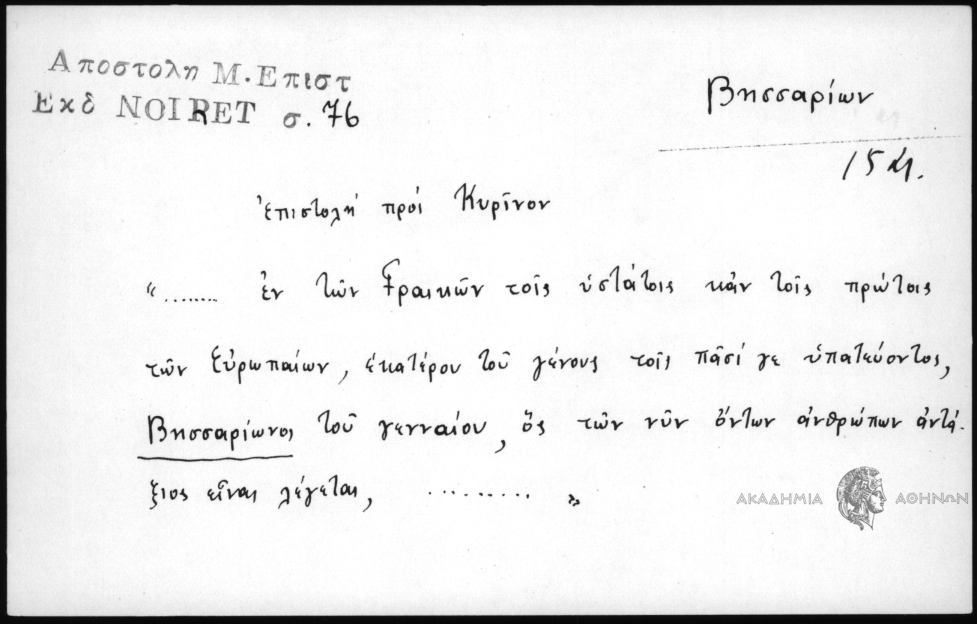 Αποστολη Μ. Επιστ
Εκδ NOIRET σ. 76
Βησσαρίων
15 αι.
ἐπιστολή πρός Κυρῖνον
"........ ἐν τῶν Γραικῶν τοῖς ὑστάτοις κἀν τοῖς πρώτοις
τῶν Εὐρωπαίων, ἑκατέρου τοῦ γένους τοῖς πᾶσί γε ὑπατεύοντος,
Βησσαρίωνος τοῦ γενναίου, ὃς τῶν νῦν ὄντων ἀνθρώπων ἀντά-
ξιος εἶναι λέγεται, .......... "
ΑΚΑΔΗΜΙΑ ΑΘΗΝΩΝ